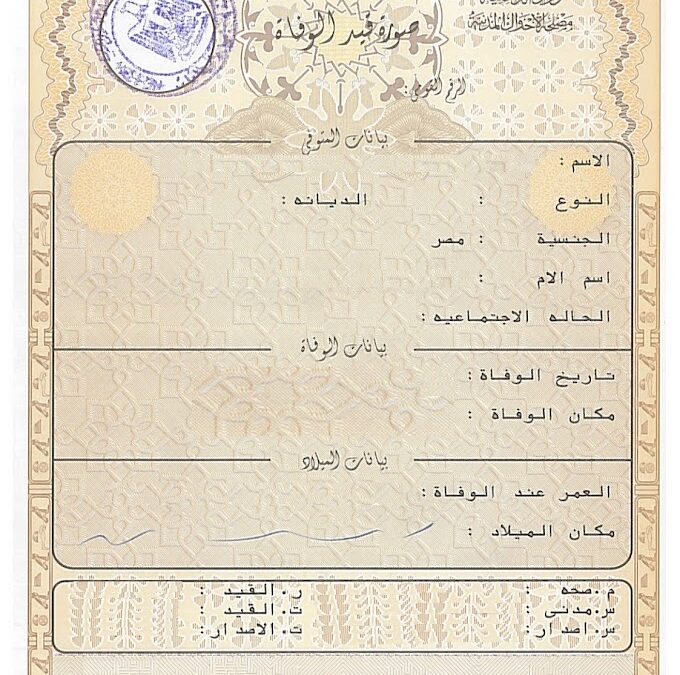 مصلحة الأحوال المدنية
صورة قيد الوفاة
الرقم القومى:
بيانات المتوفى
الاسم :
النوع : الديانه :
الجنسية : مصر
اسم الام :
الحاله الاجتماعيه :
بيانات الوفاة
تاريخ الوفاة :
مكان الوفاة :
بيانات الميلاد
العمر عند الوفاة :
مكان الميلاد :
م.صحه : ر.القيد :
س.مدنى : ت.القيد :
س.اصدار : ت.الاصدار :